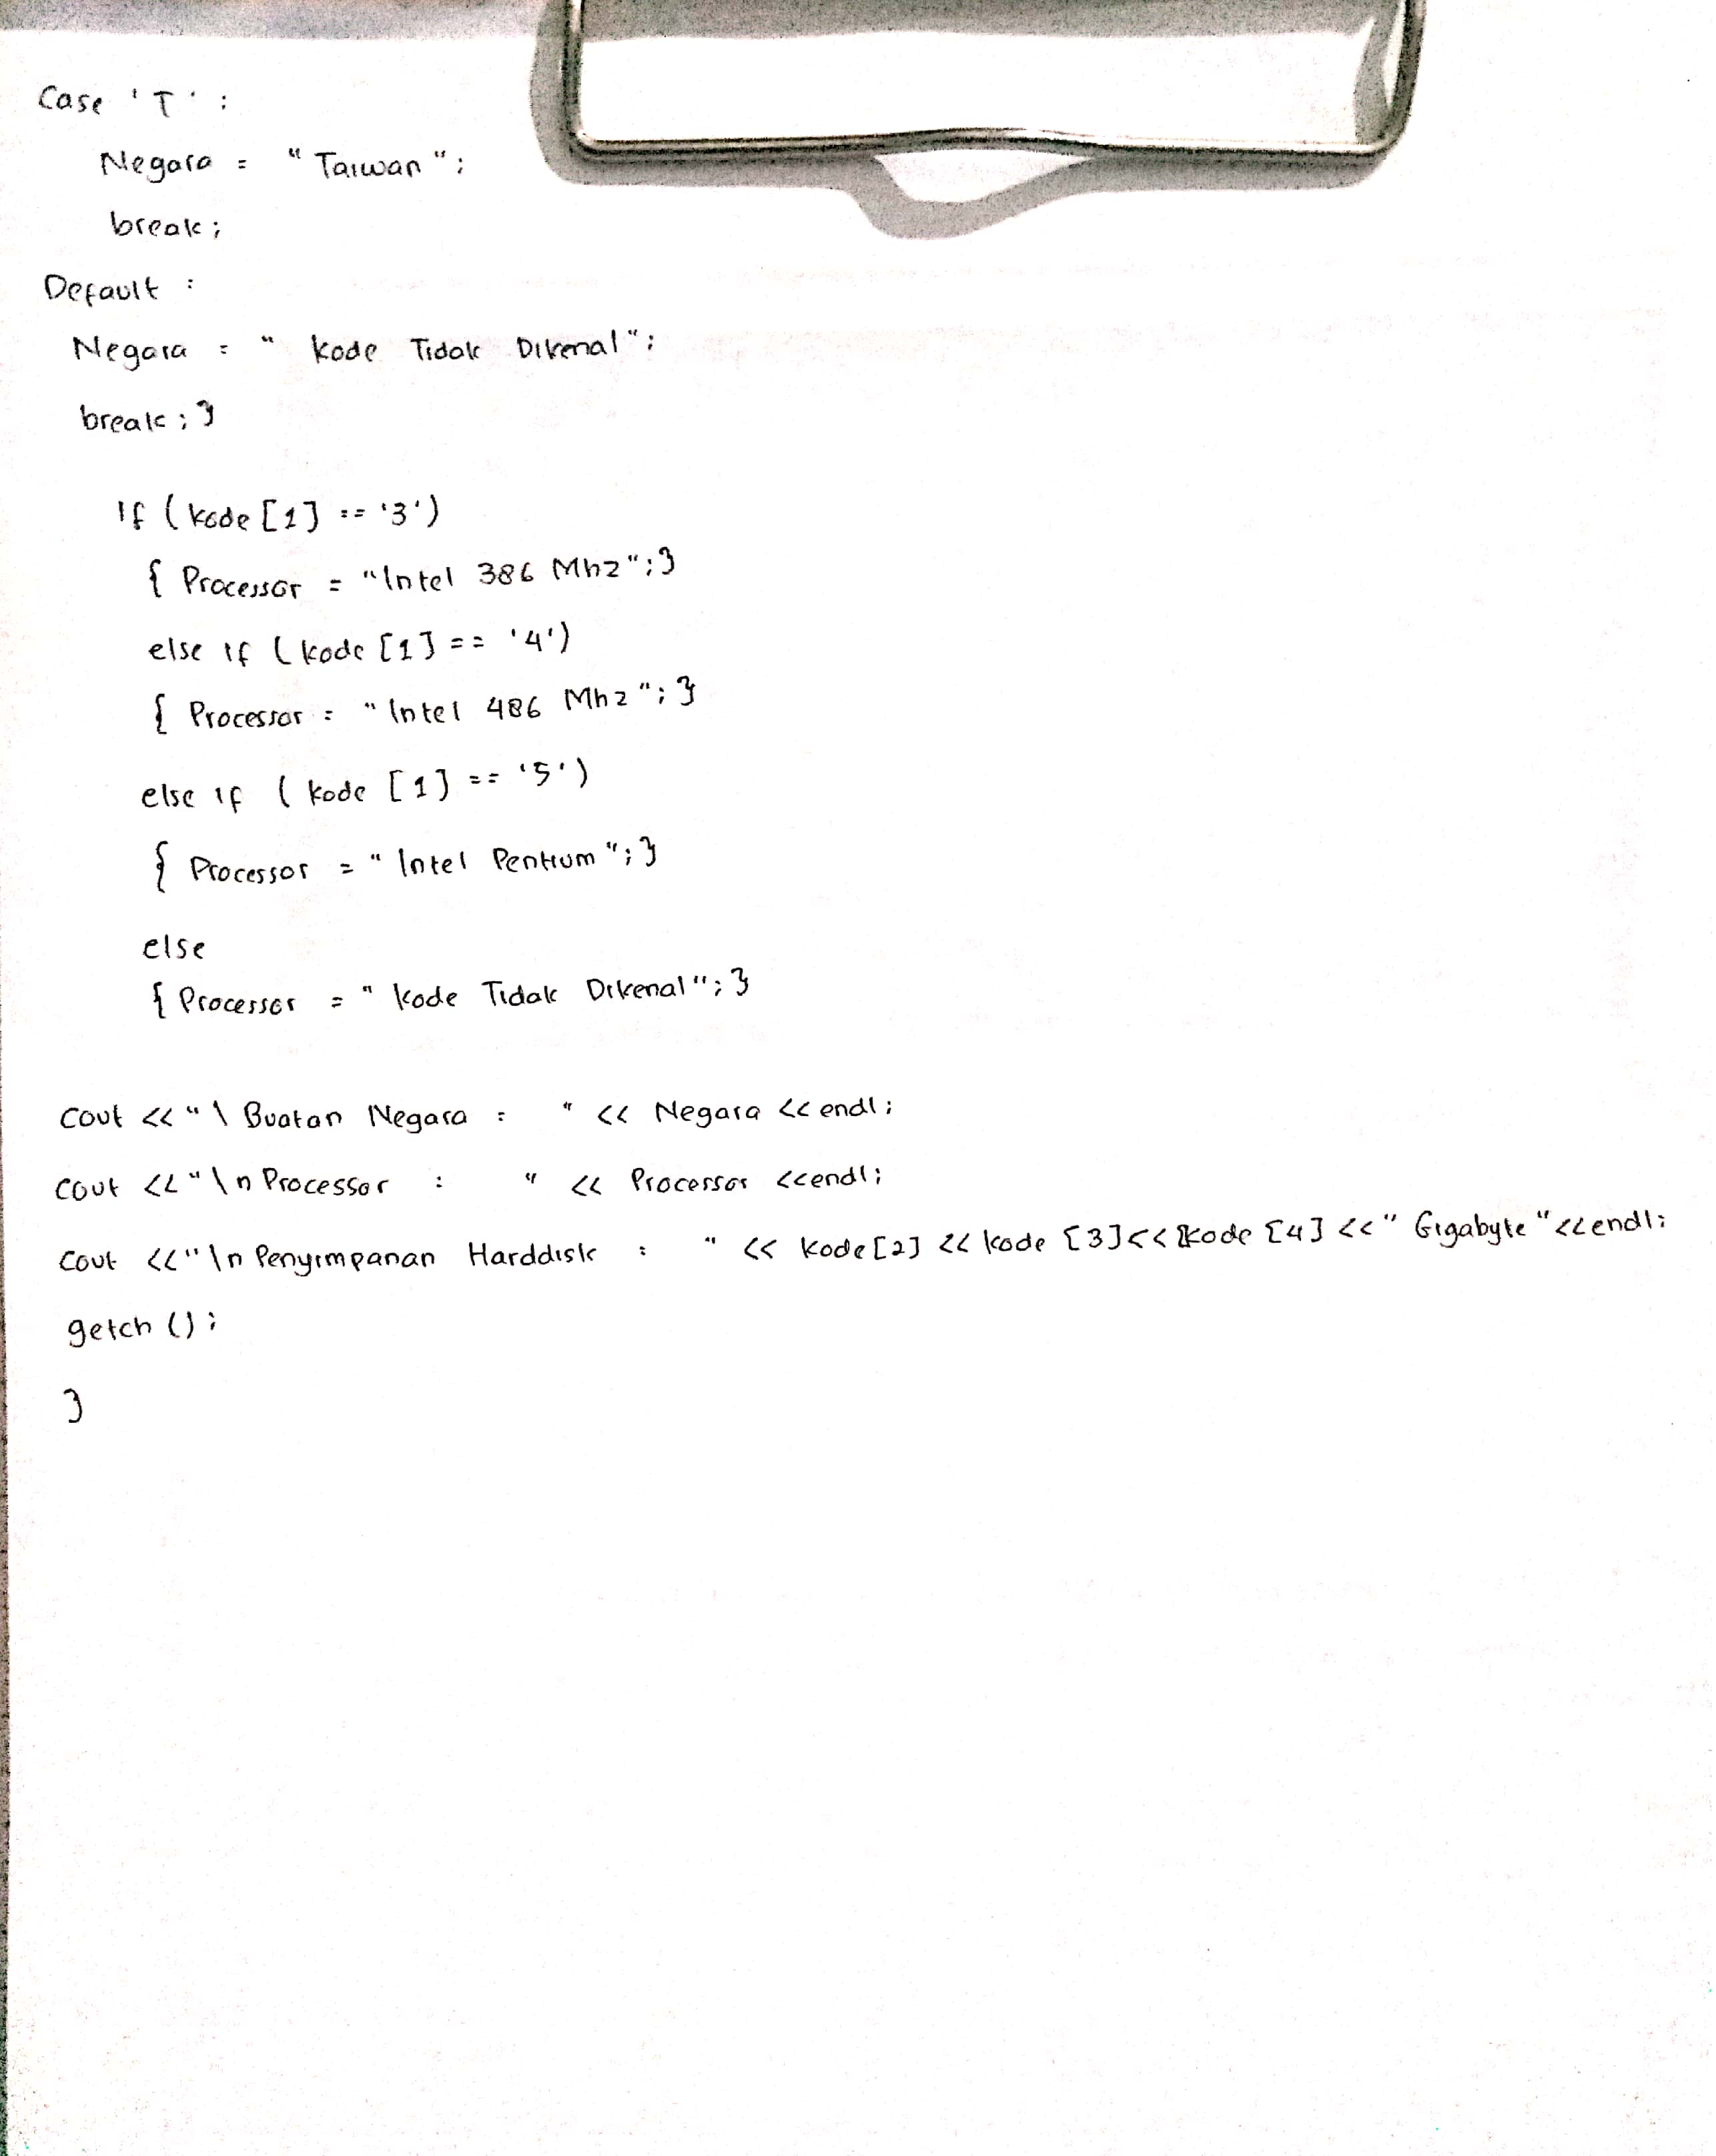 Case 'T' :
Negara = "Taiwan";
break;
Default :
Negara = " Kode Tidak Dikenal";
break; }
If (kode [1] == '3')
{ Processor = "Intel 386 Mhz";}
else if (kode [1] == '4')
{ Processor = "Intel 486 Mhz"; }
else if (kode [1] == '5')
{ Processor = "Intel Pentium"; }
else
{ Processor = " Kode Tidak Dikenal"; }
Cout <<"\ Buatan Negara : " << Negara <<endl;
Cout <<"\n Processor : " << Processor <<endl;
Cout <<"\n Penyimpanan Harddisk : " << kode[2] << kode [3]<< kode [4] <<" Gigabyte"<<endl;
getch ();
}